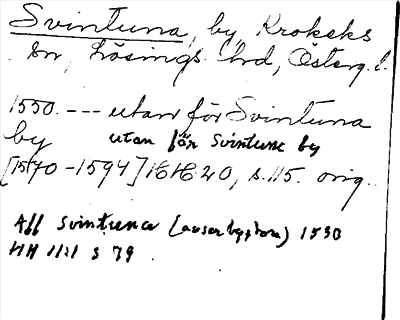 Svintuna, by, Krokeks
sn, Lösings hrd, Österg. l.
1550. --- utan för Svintuna
by utan för Svintuna by
[1570-1594] 16 16:20, s. 115. orig.
Aff Svintuna (avser bygdena) 1530
HH 11:1 s 79.